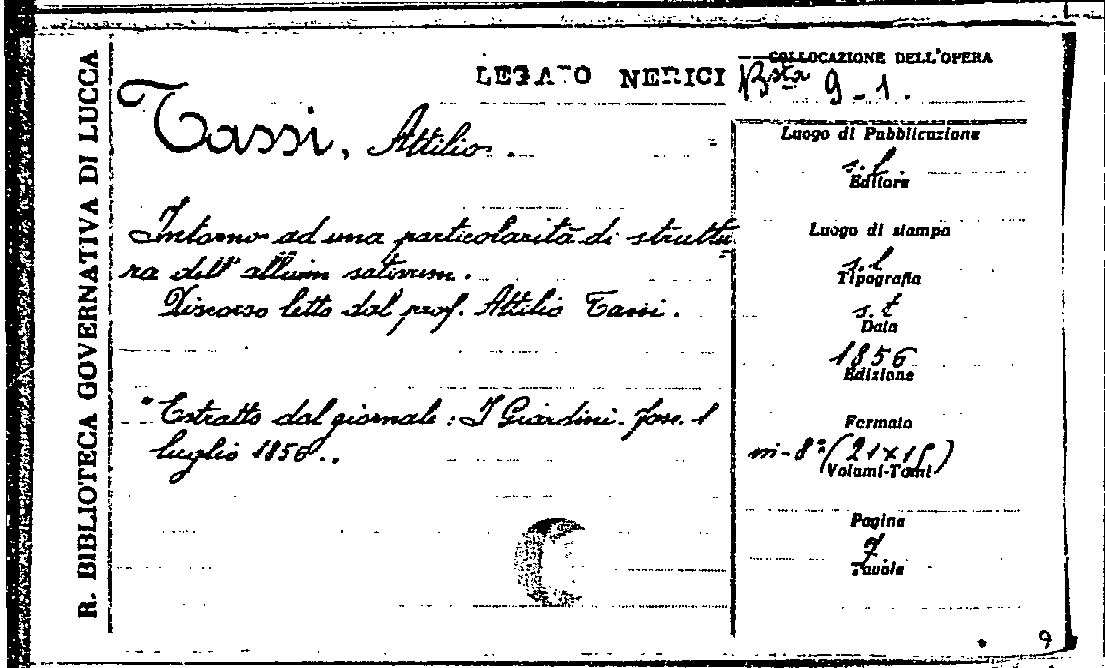 R. BIBLIOTECA GOVERNATIVA DI LUCCA
LEGATO NERICI
COLLOCAZIONE DELL'OPERA
Bsta 9-1.
Tassi, Attilio.
Intorno ad una particolarità di struttu
ra dell'allium sativum.
Discorso letto dal prof. Attilio Tassi.
"Estratto dal giornale: I Giardini. fasc. 1
luglio 1856..
Luogo di Pubblicazione
s.l.
Editore
Luogo di stampa
s.l
Tipografia
s.t
Data
1856
Edizione
Formato
in-8° (21x15)
Volumi-Tomi
Pagine
7.
Tavole
9